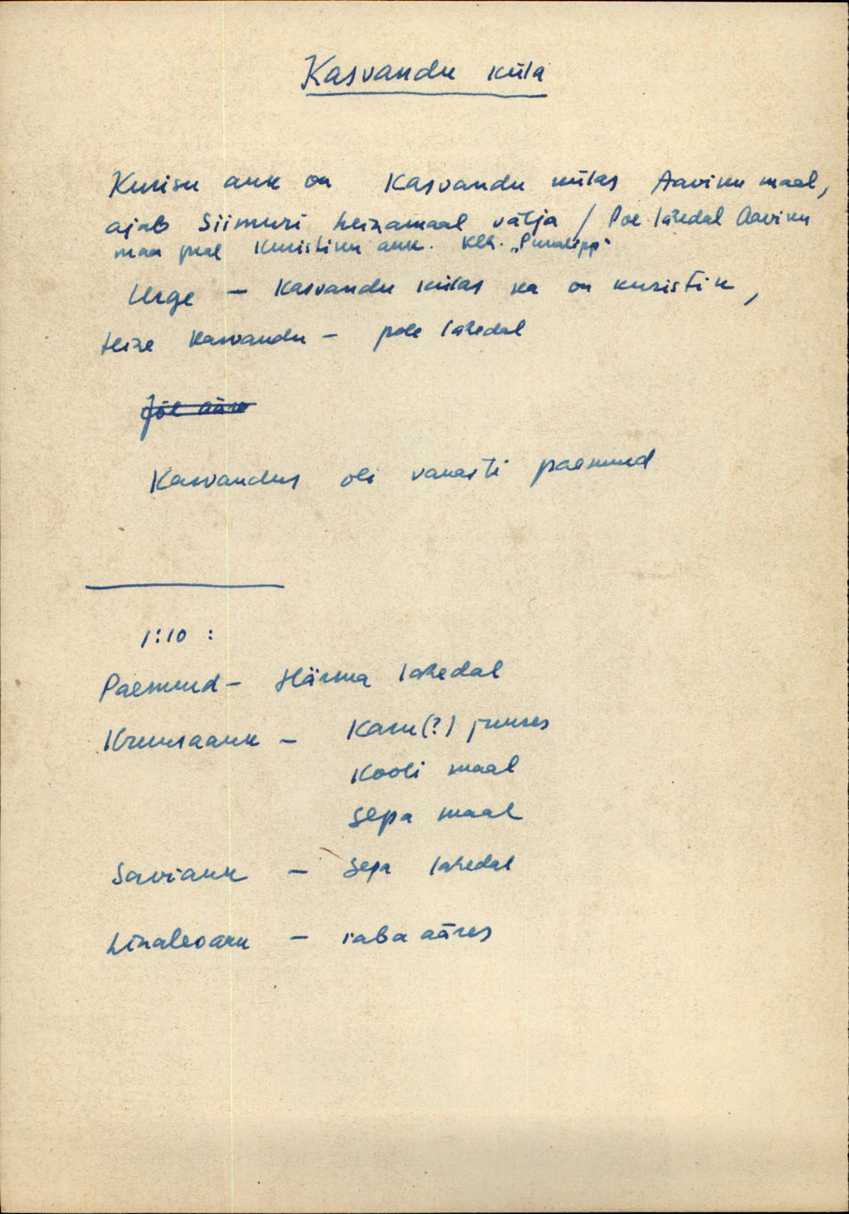 Kasvandu küla
Kurisu auk on Kasvandu külas Aaviku maal,
ajab Siimuri heinamaal välja / Poe lähedal Aaviku
maa peal Kuristiku auk. Klh. „Punalipp“
Urge – Kasvandu külas ka on kuristik,
teine Kasvandu – poe lähedal
Jõe ääre
Kasvandus oli vanasti paemurd
1:10 :
Paemurd – Härma lähedal
Kruusaauk – Karu(?) juures
Kooli maal
Sepa maal
Saviauk – Sepa lähedal
Linaleoauk – raba ääres